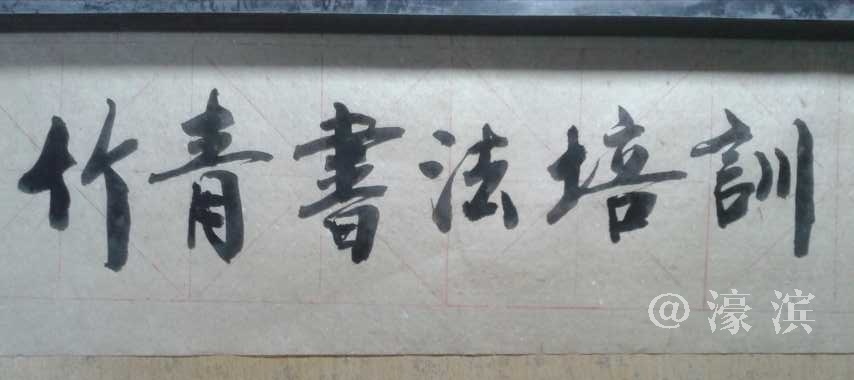 竹青書法培訓
@濠滨